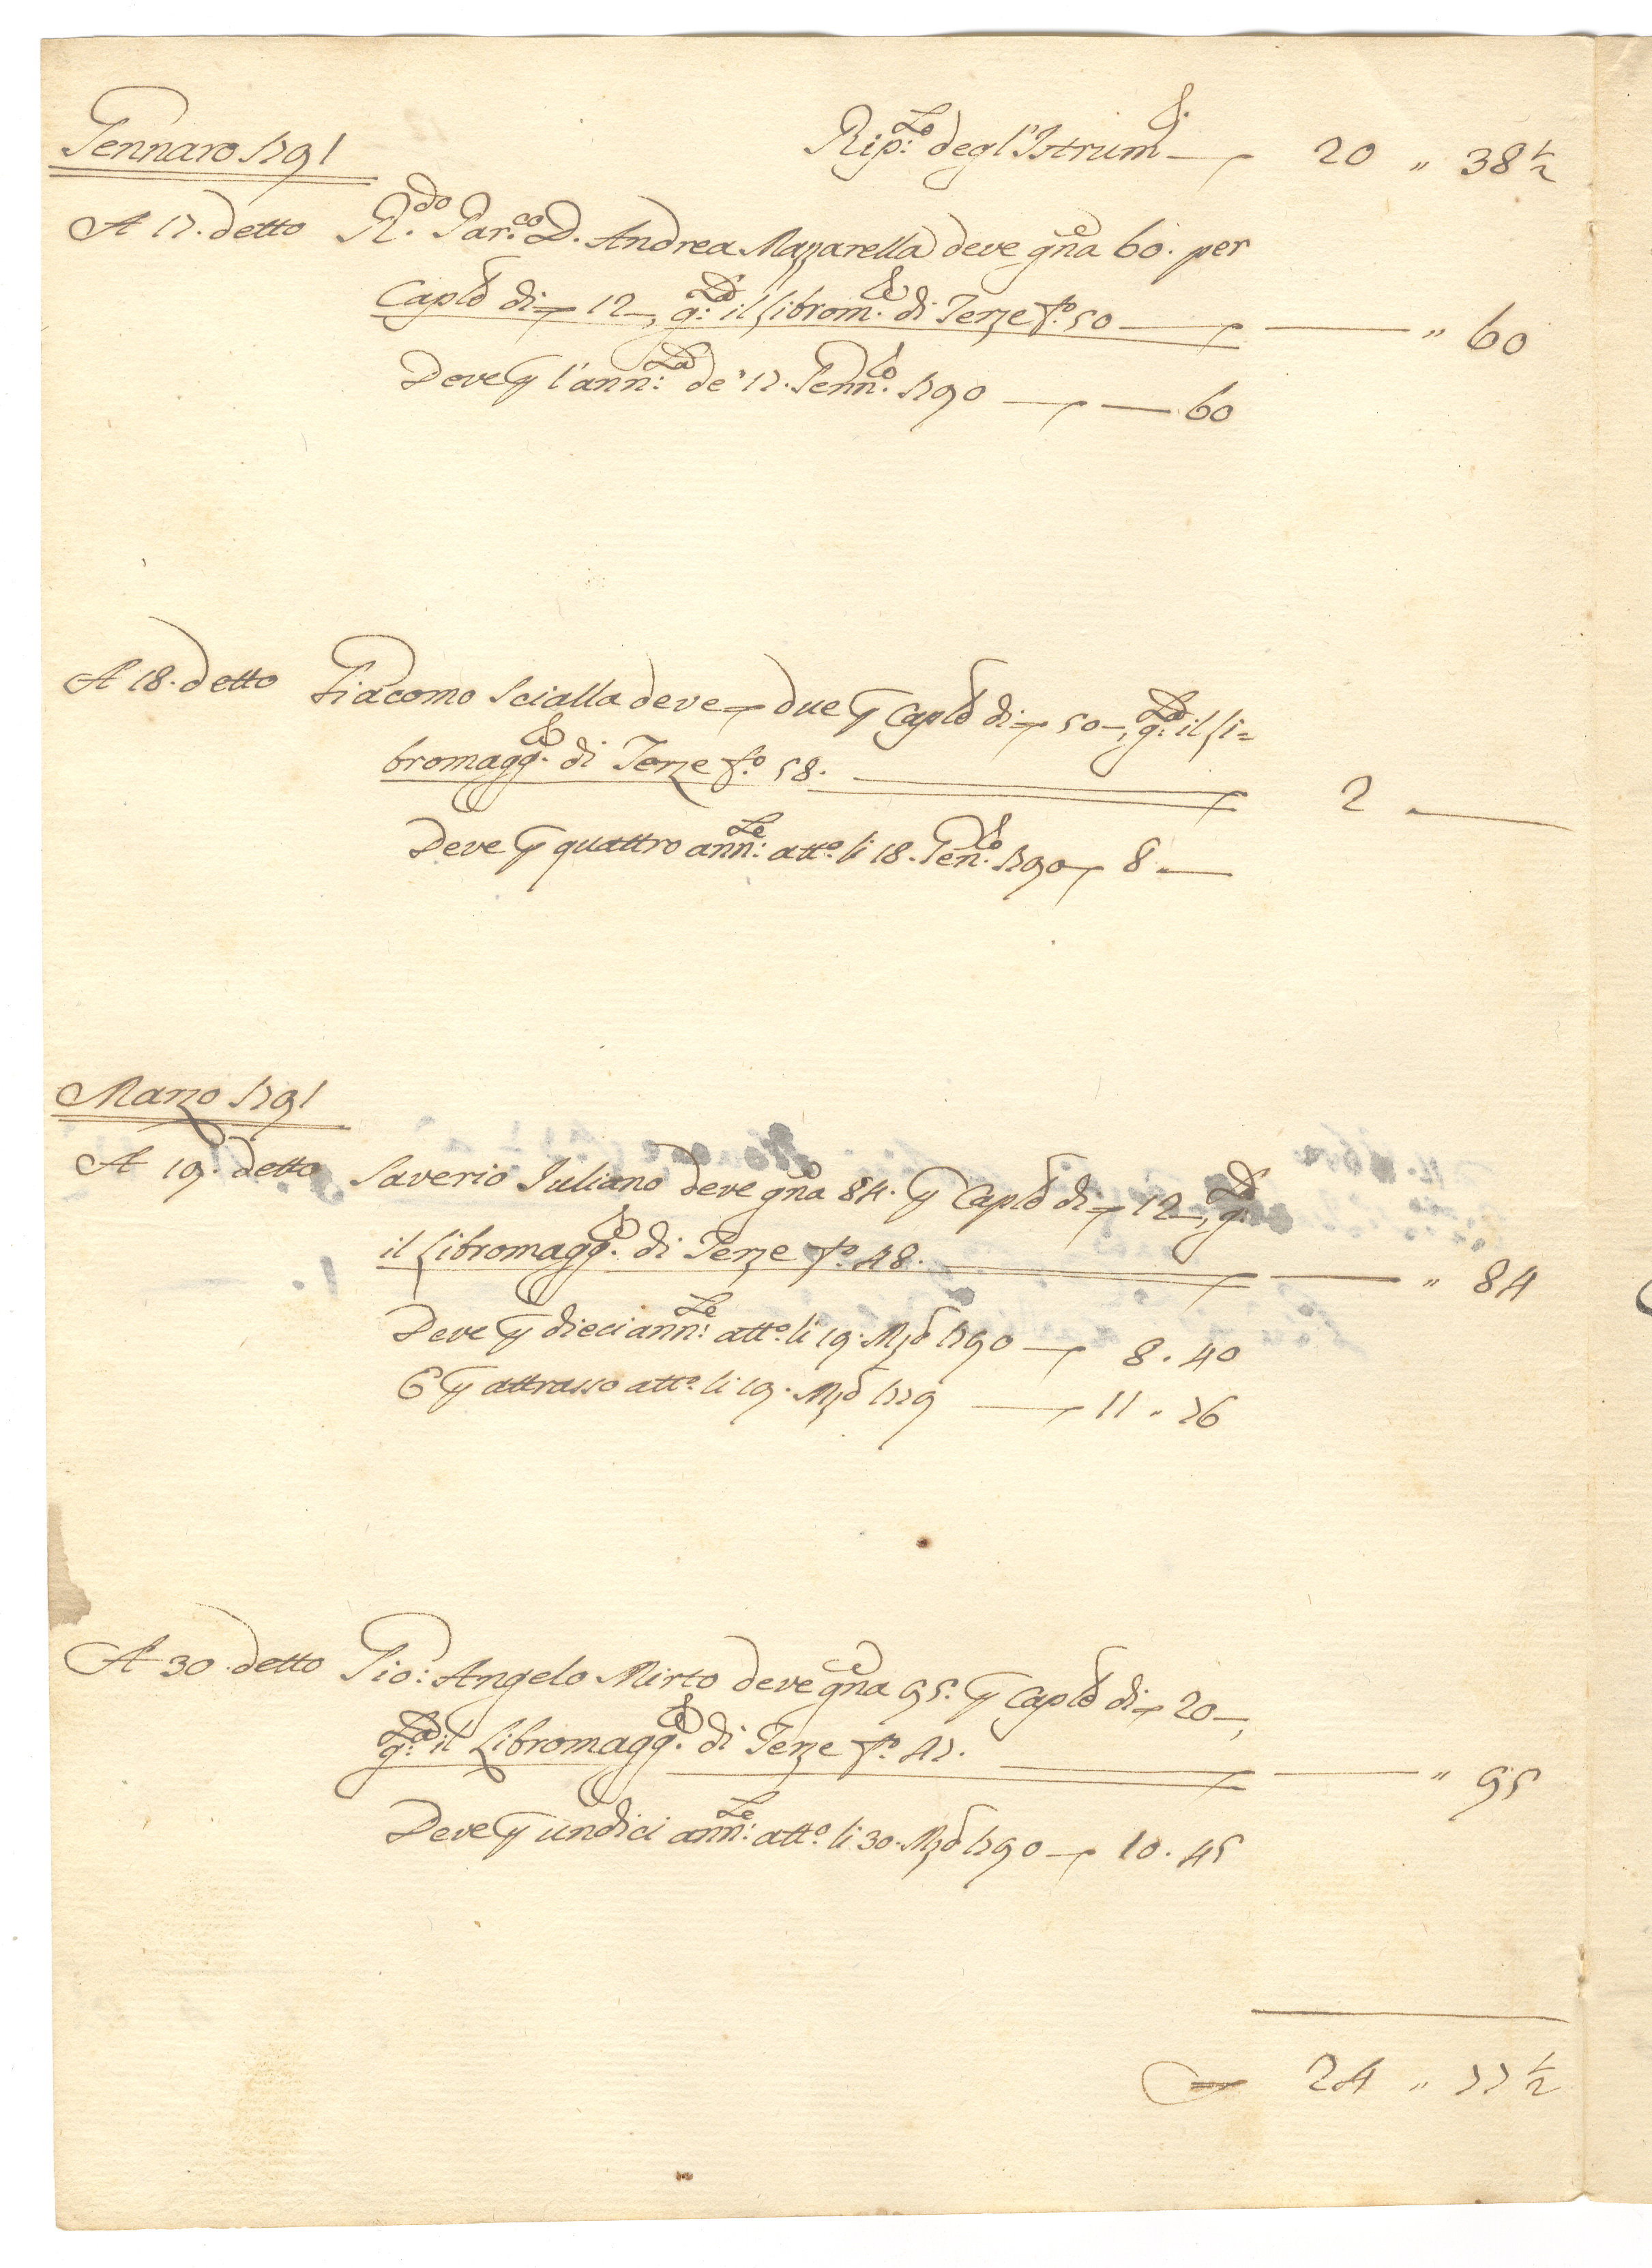 Gennaro 1791
Rip:to degl'Istrum:ti — 20 „ 38 ½
A 17. detto R.do Par.co D. Andrea Mazzarella deve gña 60. per
Caplē di 12—, g:ta il librom.re di Terze f.o 50 — — „ 60
Deve p l'ann:ta de' 17. Genn.ro 1790 — — 60
A 18. detto Giacomo Scialla deve due p Caplē di 50—, g:ta il li=
bromagg.re di Terze f.o 58. — 2 . —
Deve p quattro ann:te att.o li 18. Gen.ro 1790 8 . —
Marzo 1791
A 19. detto Saverio Iuliano deve gña 84. p Caplē di 12—, g:ta
il libromagg.re di Terze f.o 48. — — „ 84
Deve p dieci ann:te att.o li 19. Mzō 1790 — 8 . 40
E p attrasso att.o li 19. Mzō 1779 — 11 . 76
A 30 detto Gio: Angelo Mirto deve gña 95. p Caplē di 20—,
g:ta il Libromagg.re di Terze f.o 47. — — „ 95
Deve p undici ann:te att.o li 30. Mzō 1790 — 10 . 45
24 „ 77 ½